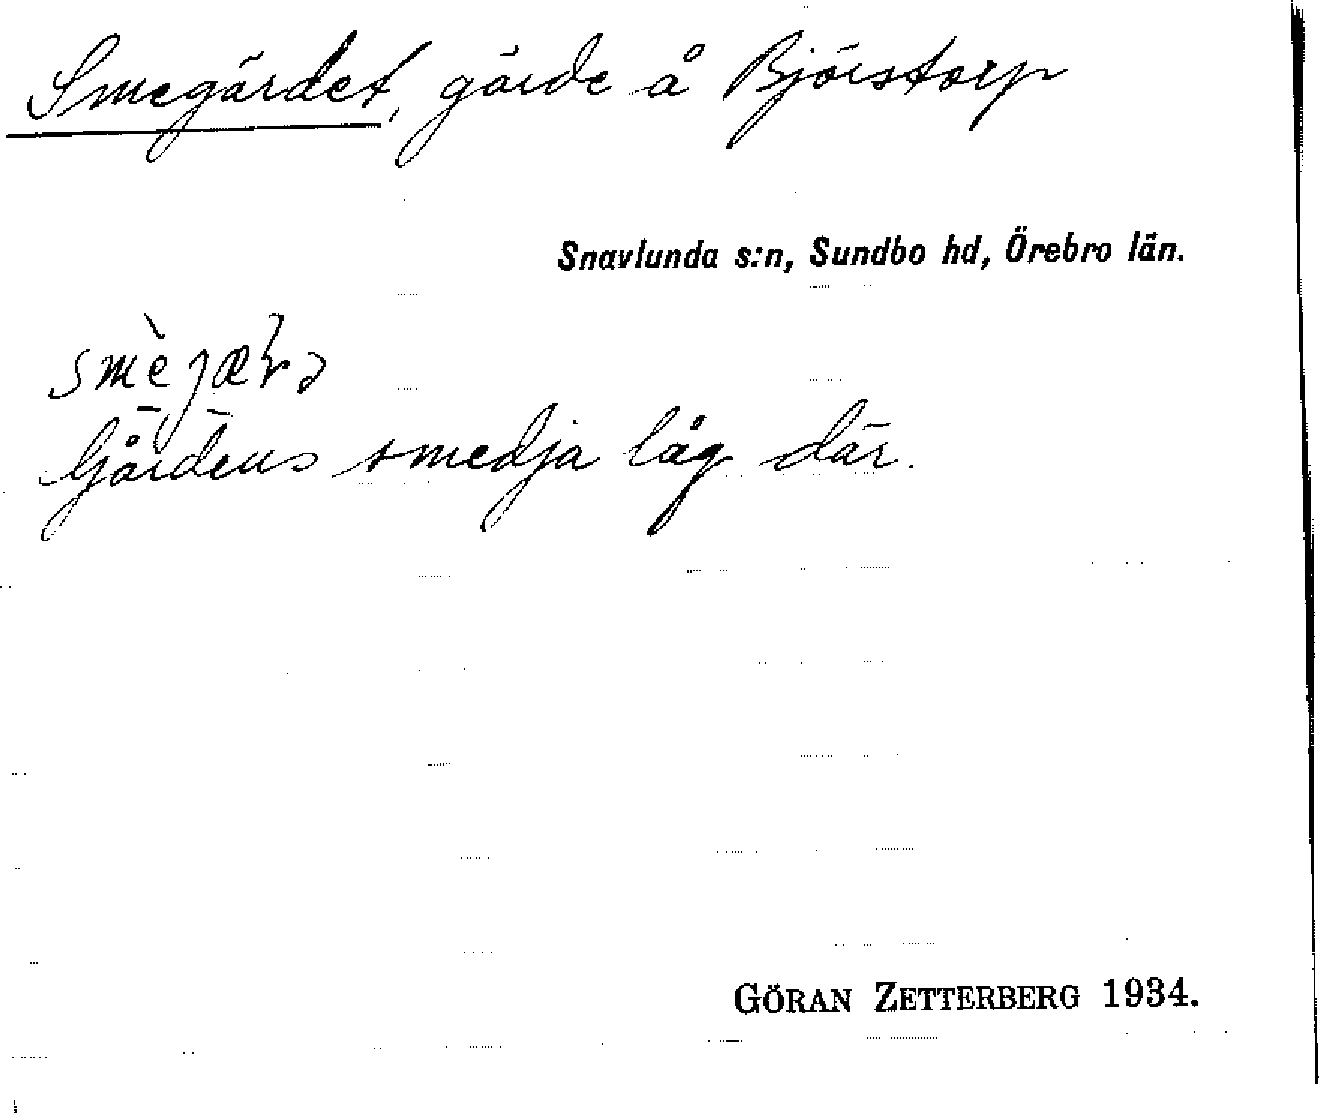 Smegärdet, gärde å Björstorp
Snavlunda s:n, Sundbo hd, Örebro län.
Gårdens smedja låg där.
GÖRAN ZETTERBERG 1934.